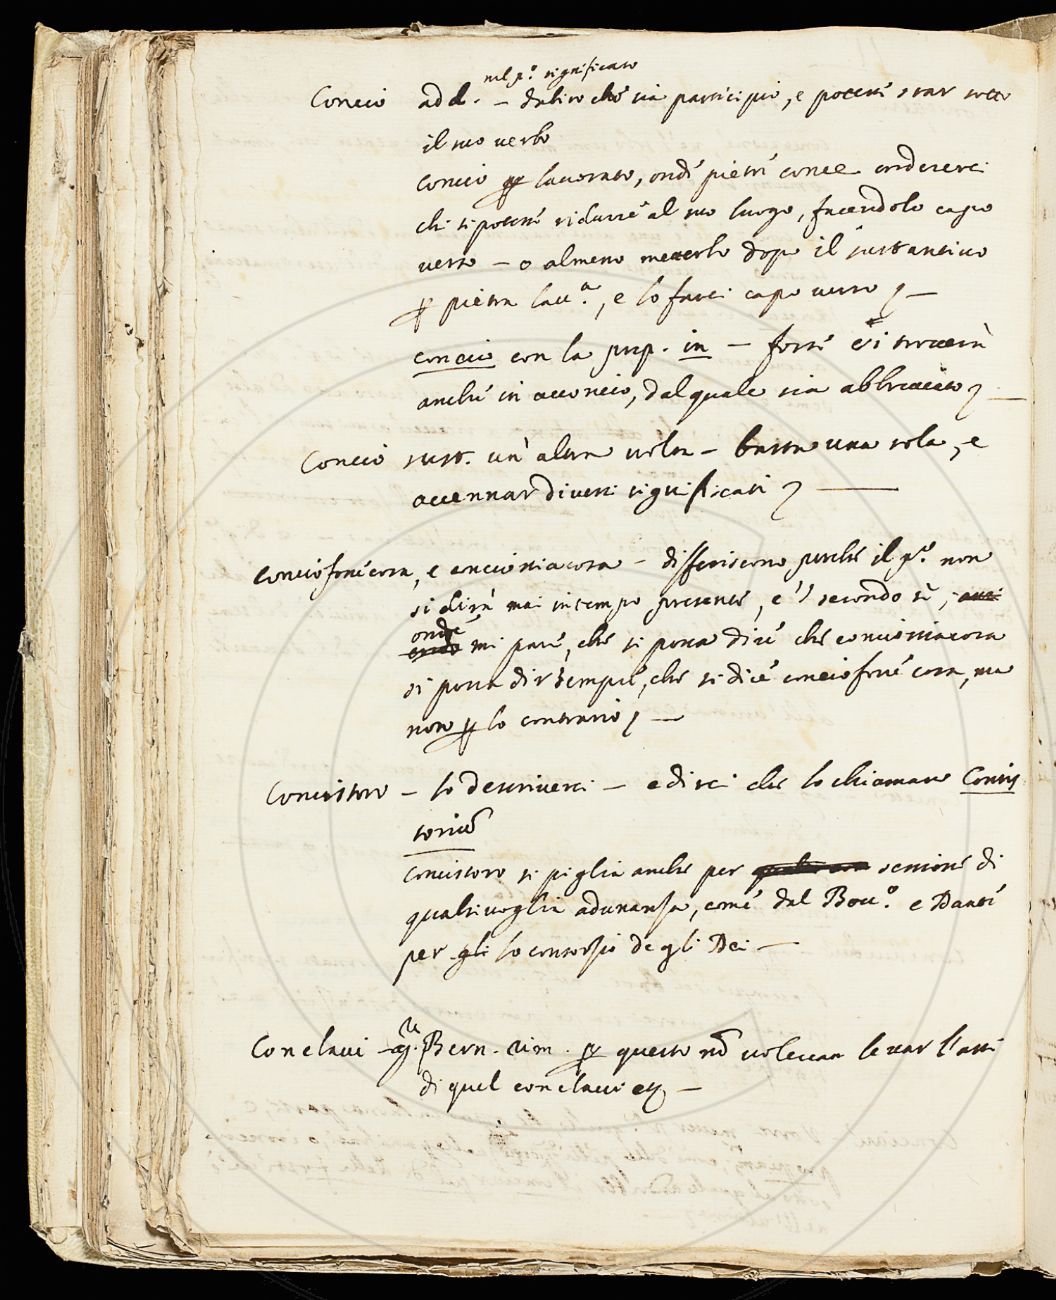 nel p.º significato
Concio add. – dubito che sia participio, e potersi star sotto
il suo verbo
Concio ꝑ lavorato, onde pietre conce crederei
che si potesse ridurre al suo luogo, facendolo capo
verso – o almeno metterlo dopo il sustantivo
ꝑ pietra lav.ª, e lo farei capo verso
concio con la prep. in – forse si troverà
anche in acconcio, dal quale sia abbreviato
Concio sust. un'altra volta – basta una sola, e
accennar diversi significati
Conciofossecosa, e conciosiacosa – differiscono perche il p.º non
si dirà mai in tempo presente, e 'l secondo sì,
onde
mi pare, che si possa dire che conciosiacosa
si possa dir sempre, che si dice conciofosse cosa, ma
non ꝑ lo contrario
Concistoro – lo descriverei – e direi che lo chiamano Concis
torium
Concistoro si piglia anche per sessione di
qualsivoglia adunanza, come dal Bocc.º e Dante
per lo consorzio degli Dei –
Conclavi – Bern. rim. ꝑ questo nõ volevan levar l'assi
di quel conclavi –